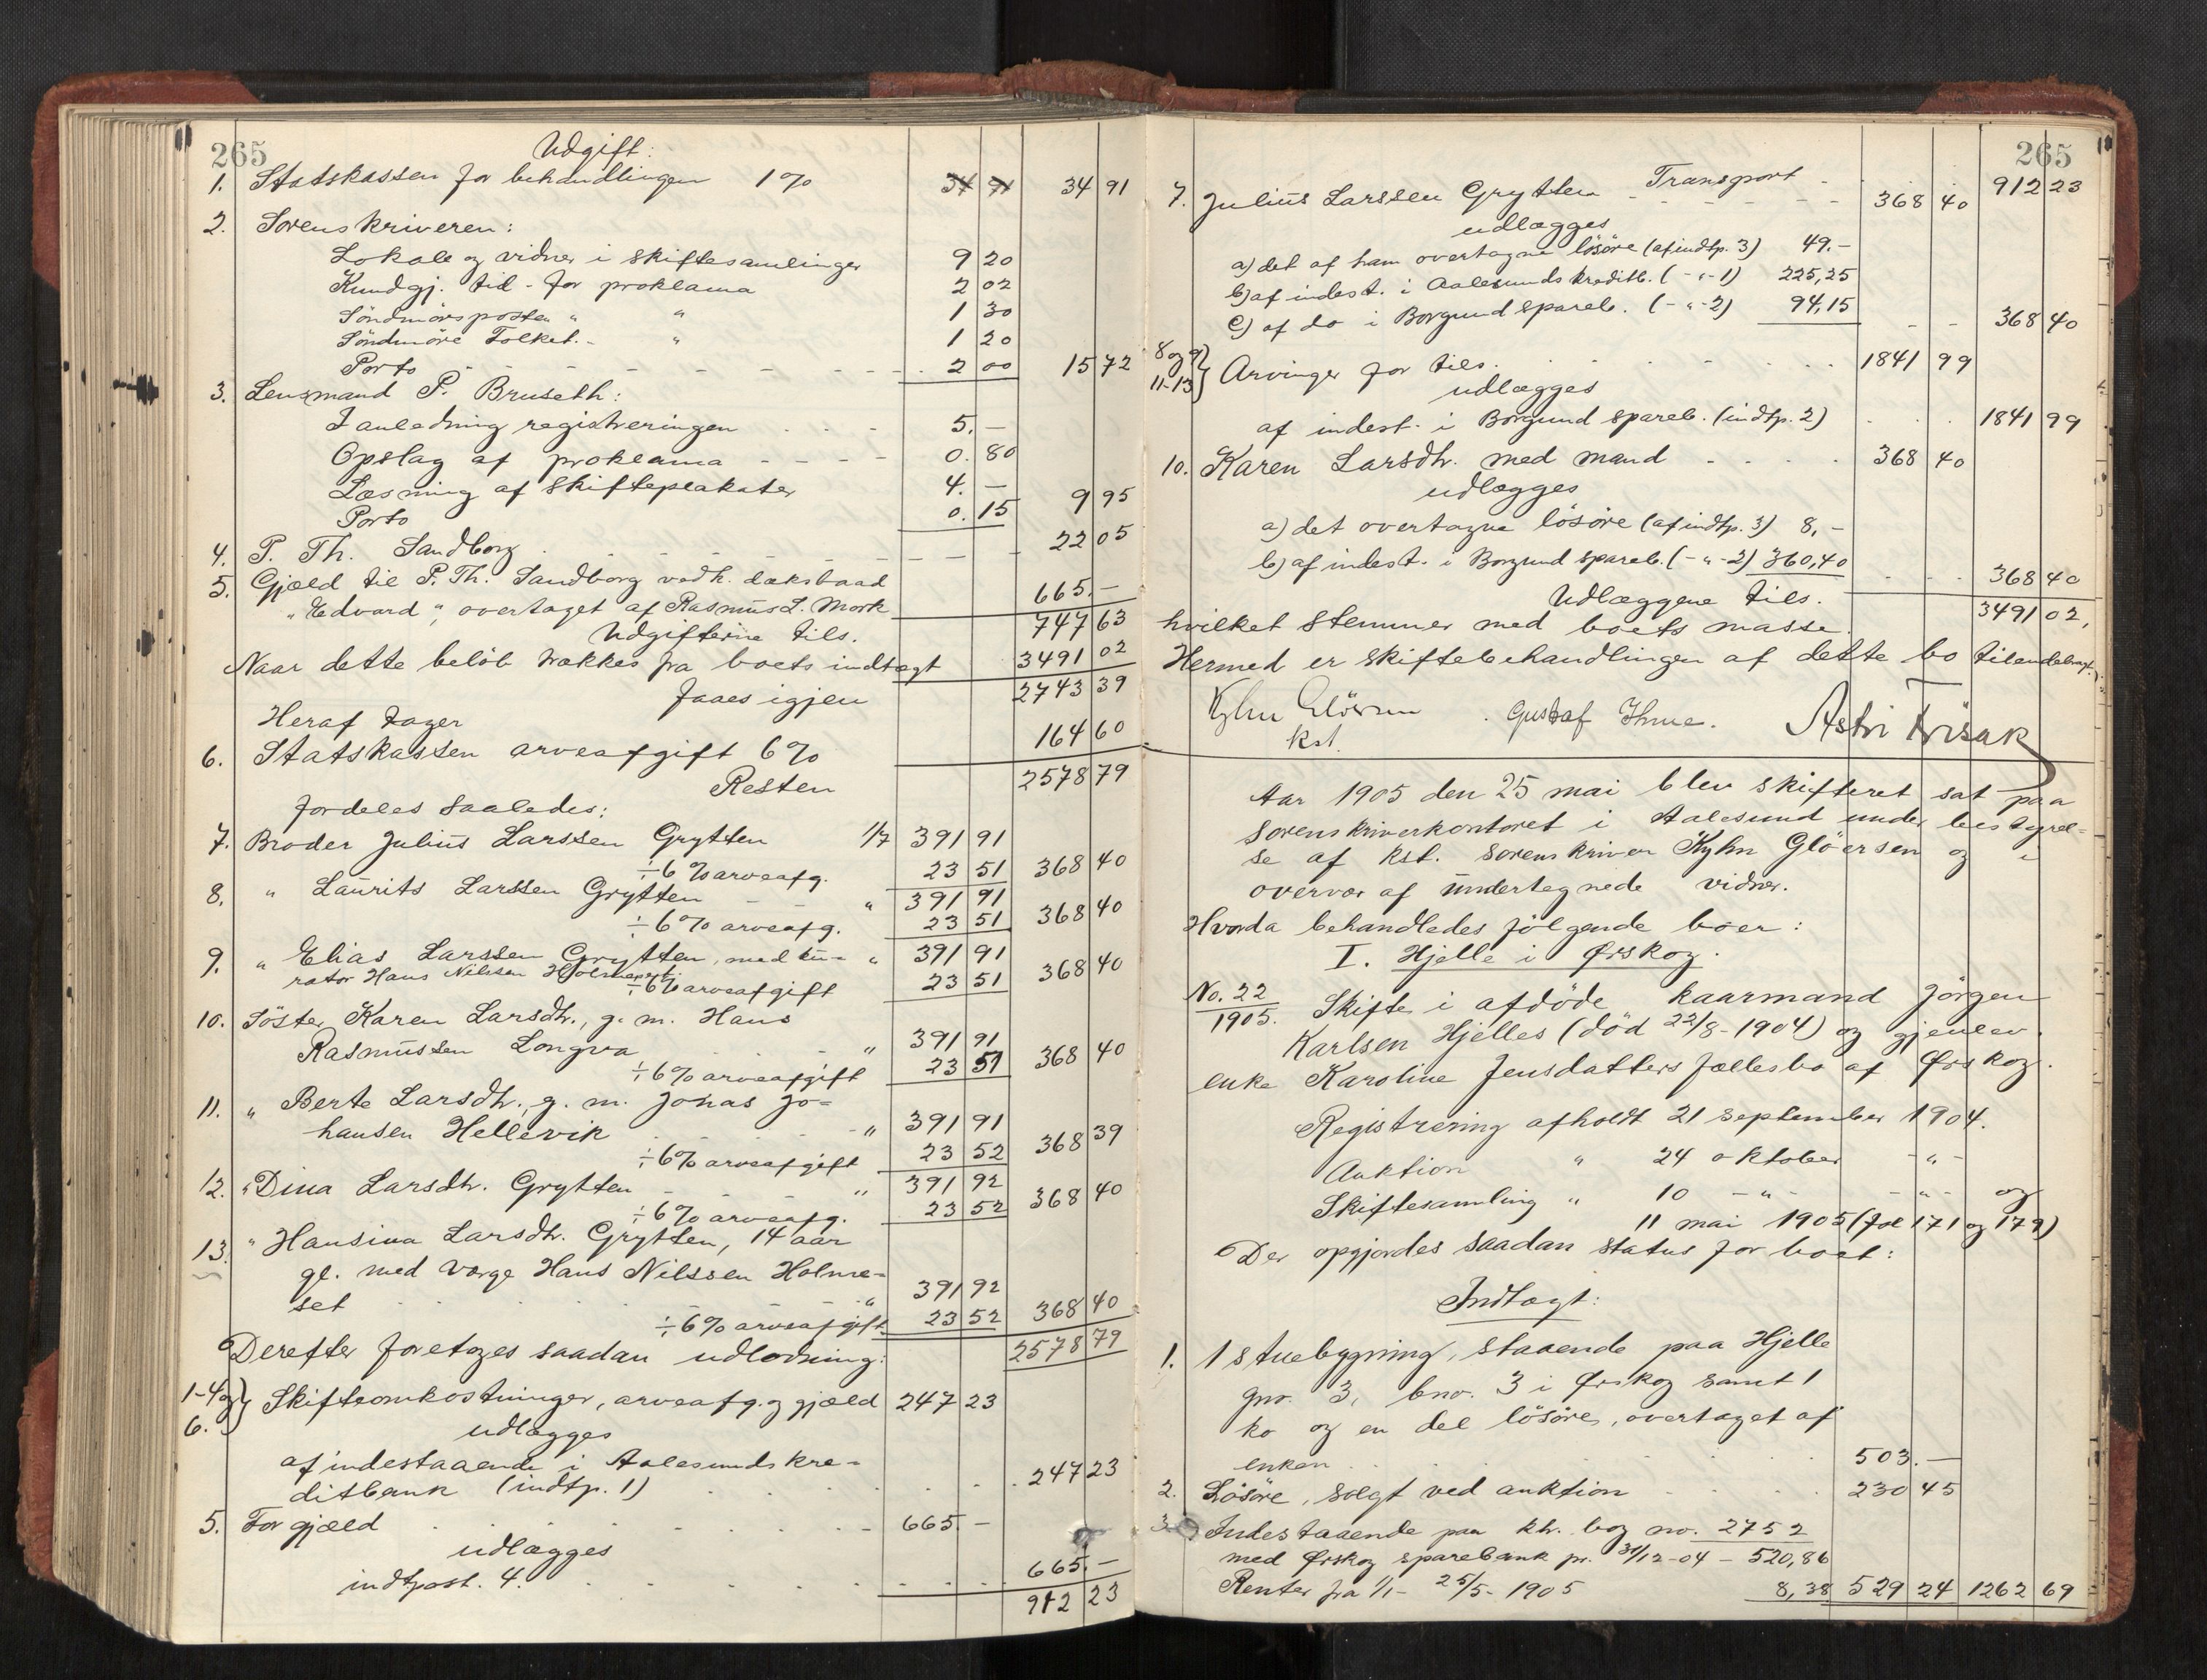 265
Udgift:
1. Statskassen for behandlingen 1% 34 91 34 91
2. Sorenskriveren:
Lokale og vidner i skiftesamlinger 9 20
Kundgj. tid - for proklama 2 02
Söndmörsposten " " 1 30
Söndmöre Folket. - " 1 20
Porto 2 00 15 72
3. Lensmand P. Bruseth:
I anledning registreringen 5. —
Opslag af proklama 0. 80
Læsning af skifteplakater 4. —
Porto 0. 15 9 95
4. P. Th. Sandborg 22 05
5. Gjæld til P. Th. Sandborg vedk. dæksbaad
"Edvard", overtaget af Rasmus L. Mork 665. —
Udgifterne tils. 747 63
Naar dette belöb trækkes fra boets indtægt 3491 02
faaes igjen 2743 39
Heraf tager
6. Statskassen arveafgift 6% 164 60
Resten 2578 79
fordeles saaledes:
7. Broder Julius Larssen Grytten 1/7 391 91
÷ 6% arveafg. 23 51 368 40
8. " Laurits Larssen Grytten " 391 91
÷ 6% arveafg. 23 51 368 40
9. " Elias Larssen Grytten, med ku- " 391 91
rator Hans Nilssen Holmeset.
÷ 6% arveafgift 23 51 368 40
10. Söster Karen Larsdtr., g. m. Hans
Rasmussen Longva " 391 91
÷ 6% arveafgift 23 51 368 40
11. " Berte Larsdtr., g. m. Jonas Jo-
hansen Hellevik " 391 91
÷ 6% arveafgift 23 52 368 39
12. " Dina Larsdtr. Grytten " 391 92
÷ 6% arveafg. 23 52 368 40
13. " Hansina Larsdtr. Grytten, 14 aar
gl. med værge Hans Nilssen Holme-
set " 391 92
÷ 6% arveafgift 23 52 368 40
Derefter foretoges saadan udlodning: 2578 79
1-4 og 6. } Skifteomkostninger, arveafg. og gjæld 247 23
udlægges
af indestaaende i Aalesunds kre-
ditbank (indtp. 1) 247 23
5. For gjæld 665. —
udlægges
indtpost. 4. 665. —
912 23
265
Transport 912 23
7. Julius Larssen Grytten 368 40
udlægges
a) det af ham overtagne lösöre (af indtp. 3) 49.-
b) af indest. i Aalesunds kreditb. ( - " - 1) 225,25
c) af do i Borgund spareb. ( - " - 2) 94,15 368 40
8 og 9 11-13 } Arvinger for tils. 1841 99
udlægges
af indest. i Borgund spareb. (indtp. 2) 1841 99
10. Karen Larsdtr. med mand 368 40
udlægges
a) det overtagne lösöre (af indtp. 3) 8,-
b) af indest. i Borgund spareb. ( - " - 2) 360,40 368 40
Udlæggene tils. 3491 02,
hvilket stemmer med boets masse.
Hermed er skiftebehandlingen af dette bo tilendebragt.
Kyhn Glöersen Gustaf Ihme. Astri Frisak
kst.
Aar 1905 den 25 mai blev skifteret sat paa
sorenskriverkontoret i Aalesund under bestyrel-
se af kst. sorenskriver Kyhn Glöersen og i
overvær af undertegnede vidner.
Hvorda behandledes fölgende boer:
I. Hjelle i Ørskog.
No. 22
1905. Skifte i afdöde kaarmand Jörgen
Karlsen Hjelles (död 22/8 - 1904) og gjenlev.
enke Karoline Jensdatters fællesbo af Ørskog.
Registrering afholdt 21 september 1904.
Auktion " 24 oktober - " -
Skiftesamling " 10 - " - - " - og
11 mai 1905 (fol 171 og 179)
Der opgjordes saadan status for boet:
Indtægt:
1. 1 stuebygning, staaende paa Hjelle
gno. 3, bno. 3 i Ørskog samt 1
ko og en del lösöre, overtaget af
enken 503. —
2. Lösöre, solgt ved auktion 230 45
3. Indestaaende paa ktr. bog no. 2752
med Ørskog sparebank pr. 31/12-04 - 520,86
Renter fra 1/1 - 25/5 - 1905 8,38 529 24 1262 69